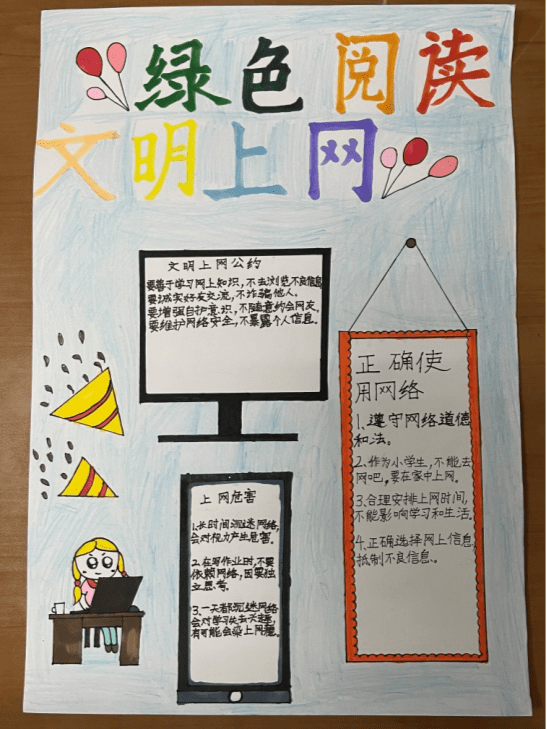 绿色阅读
文明上网
文明上网公约
要善于学习网上知识,不去浏览不良信息
要诚实好友交流,不诈骗他人。
要增强自护意识,不随意约会网友。
要维护网络安全,不暴露个人信息。
正确使
用网络
1、遵守网络道德
和法。
2、作为小学生,不能去
网吧,要在家中上网。
3、合理安排上网时间,
不能影响学习和生活。
4、正确选择网上信息
抵制不良信息。
上网危害
1、长时间沉迷网络,
会对视力产生危害。
2、在写作业时,不要
依赖网络,因要独
立思考。
3、一天都沉迷网络
会对学习失去兴趣,
有可能会染上网瘾。